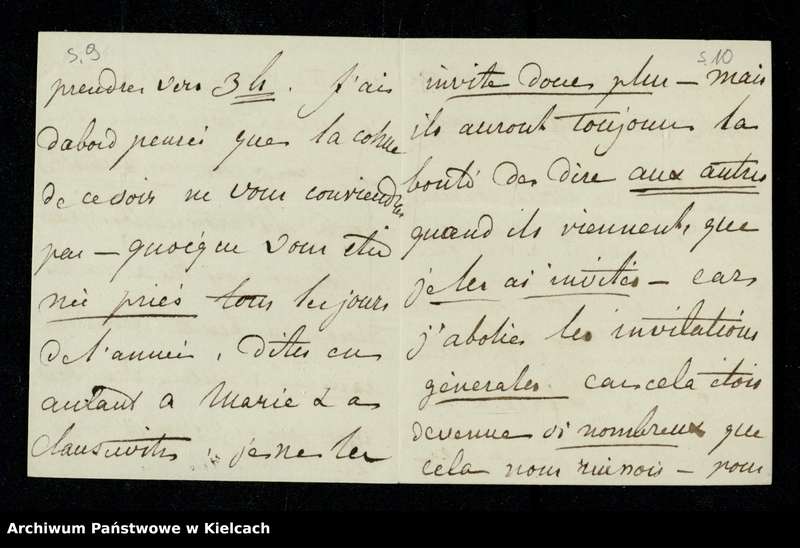 s. 9
prendre vers 3 h. J'ai
d'abord pensé que la cohue
de ce soir ne vous conviendra
pas – quoique vous étiez
née priés tous les jours
de l'année, dites en
autant à Marie & à
Clausewitz, je ne les
s. 10
invite donc plus – mais
ils auront toujours la
bonté de dire aux autres
quand ils viennent, que
je les ai invités – car
j'abolie les invitations
générales car cela étois
devenue si nombreux que
cela nous ruinois – pour
Archiwum Państwowe w Kielcach